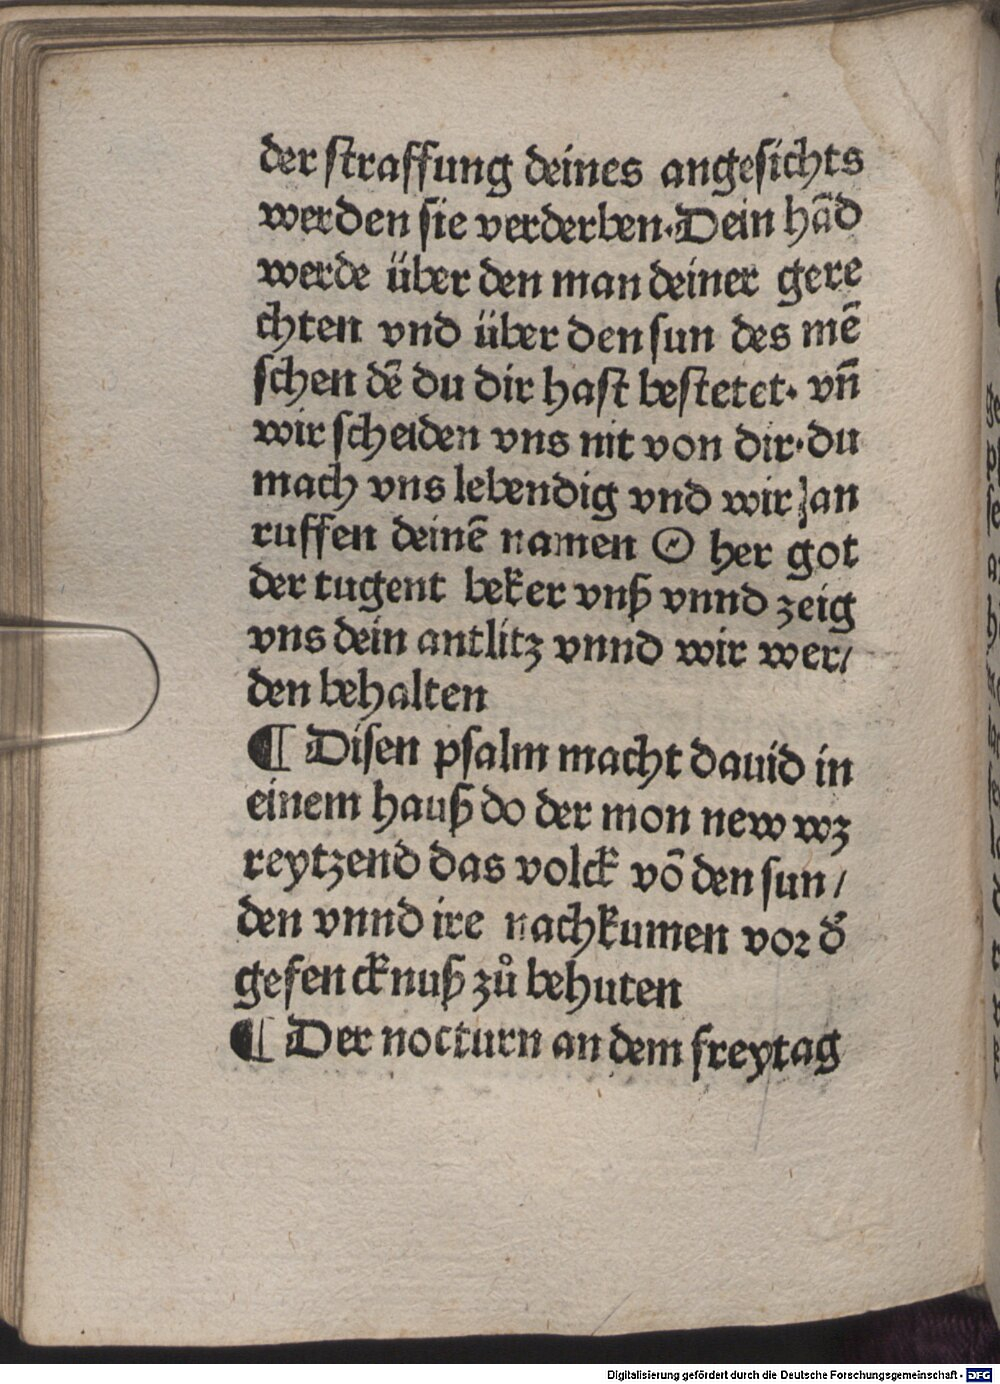 der straffung deines angesichts
werden sie verderben. Dein hãd
werde über den man deiner gere
chten vnd über den sun des mẽ
schen dẽ du dir hast bestetet. vñ
wir scheiden vns nit von dir. du
mach vns lebendig vnd wir an
ruffen deinẽ namen O her got
der tugent beker vnß vnnd zeig
vns dein antlitz vnnd wir wer/
den behalten
¶ Disen psalm macht dauid in
einem hauß do der mon new wz
reytzend das volck võ den sun/
den vnnd ire nachkumen vor d̕
gefencknuß zů behuten
¶ Der nocturn an dem freytag
Digitalisierung gefördert durch die Deutsche Forschungsgemeinschaft - DFG